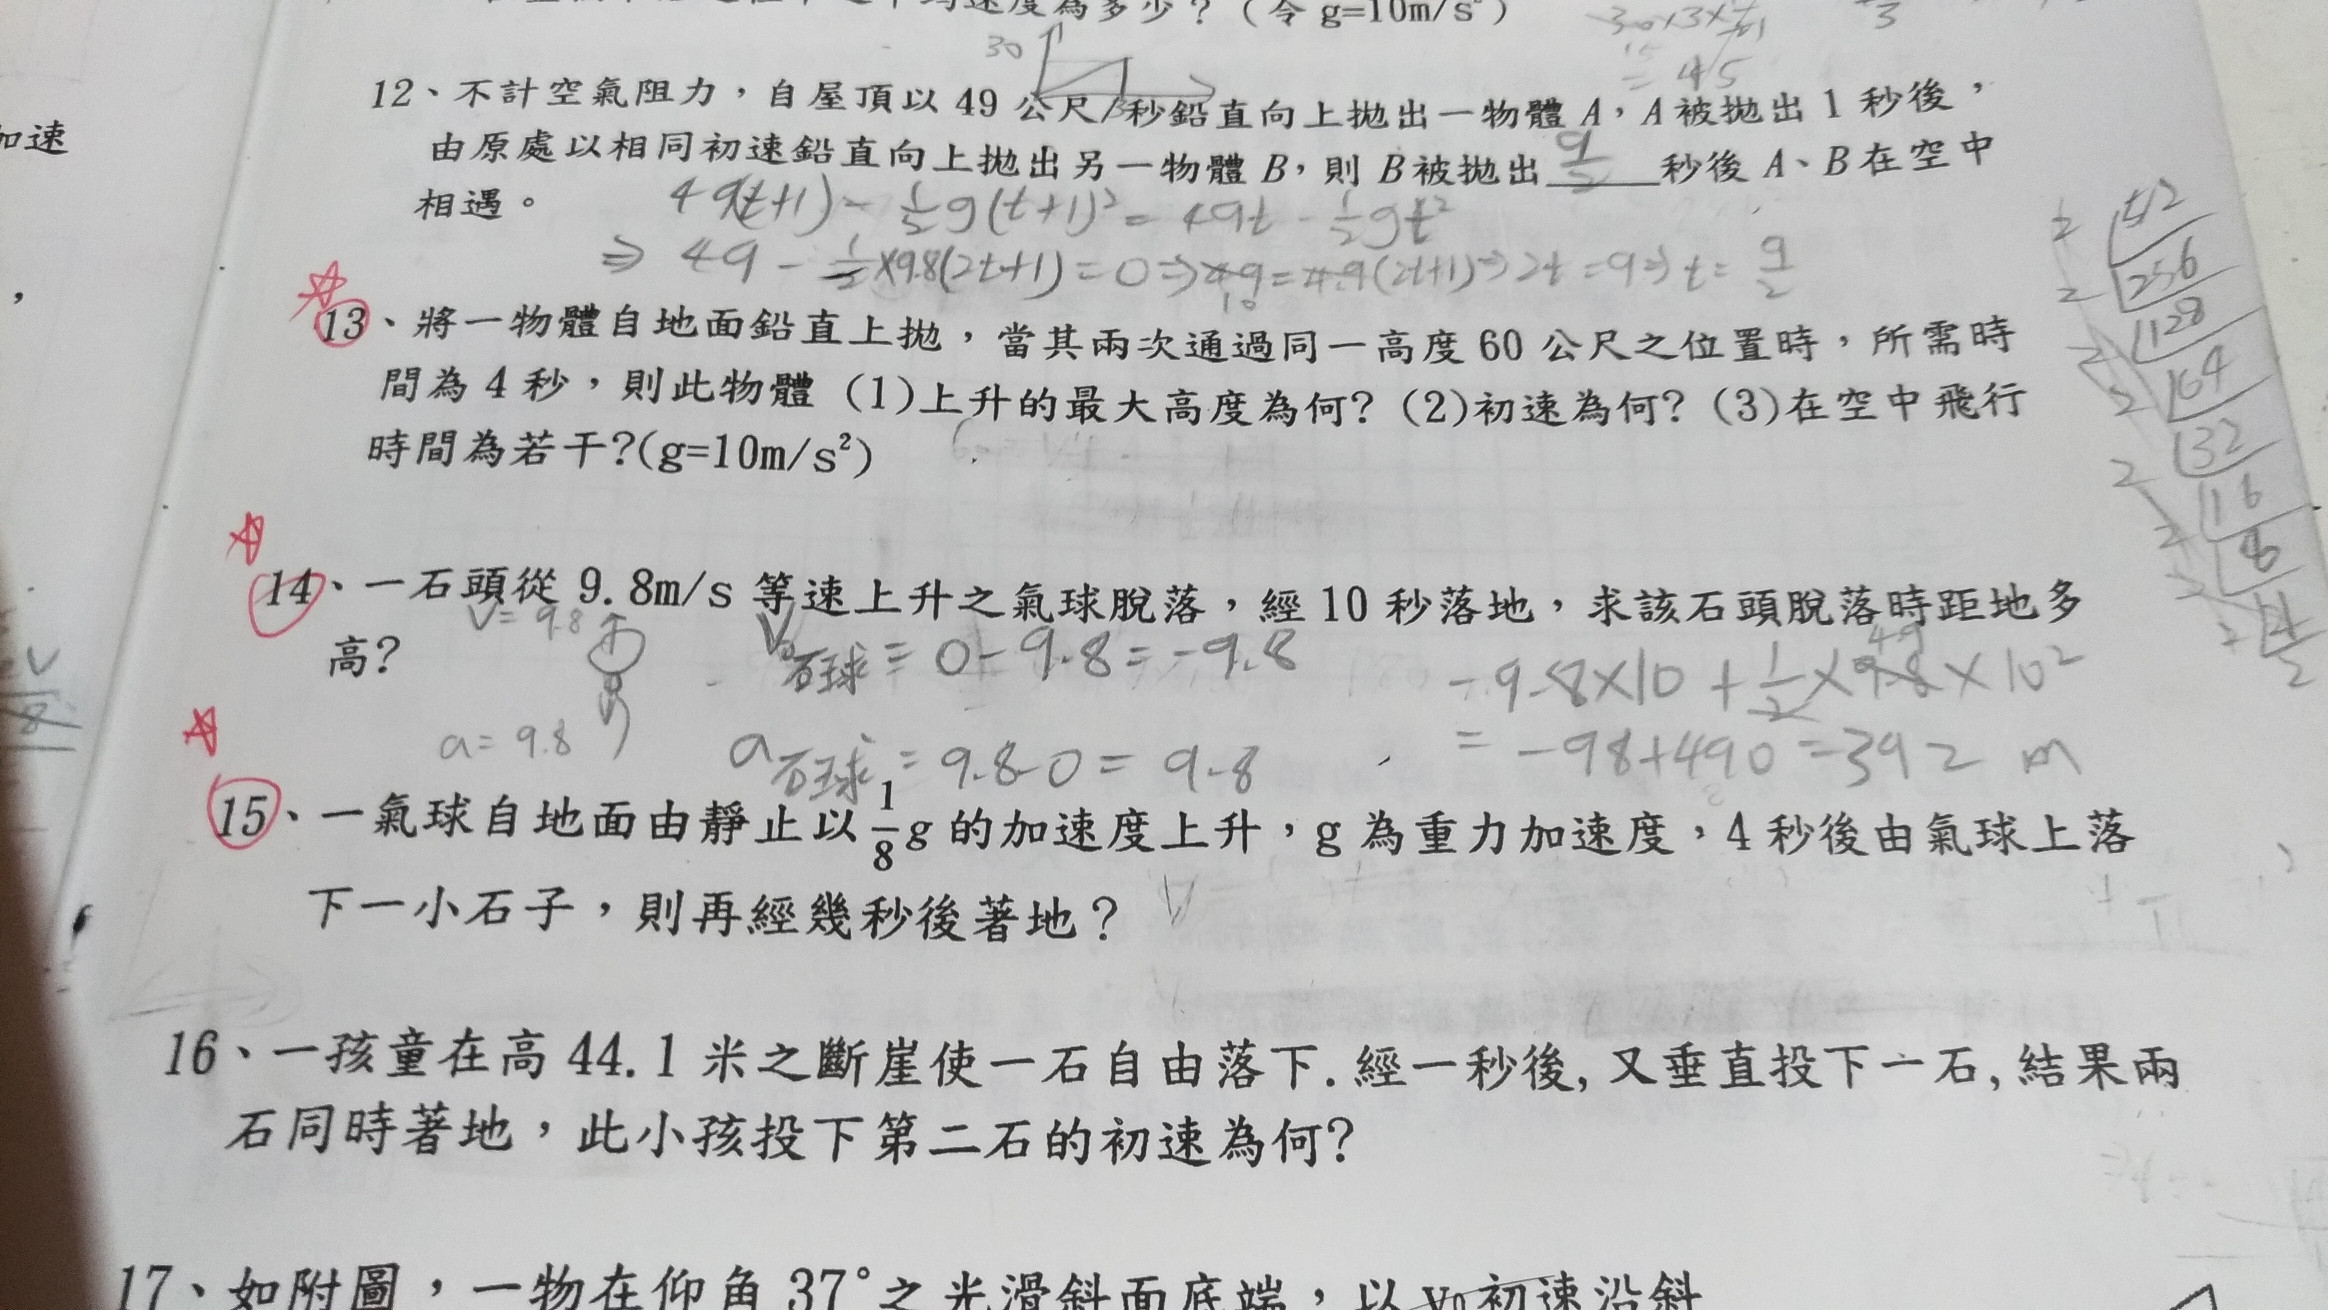 速度為多少？（令 g=10m/s²）
30
= 45
12、不計空氣阻力，自屋頂以 49 公尺/秒鉛直向上拋出一物體 A，A 被拋出 1 秒後，
加速
由原處以相同初速鉛直向上拋出另一物體 B，則 B 被拋出 9/2 秒後 A、B 在空中
相遇。
49(t+1) - 1/2 g(t+1)² = 49t - 1/2 gt²
⇒ 49 - 1/2 ×9.8(2t+1) = 0 ⇒ 49 = 4.9(2t+1) ⇒ 2t = 9 ⇒ t = 9/2
10
13、將一物體自地面鉛直上拋，當其兩次通過同一高度 60 公尺之位置時，所需時
間為 4 秒，則此物體 (1)上升的最大高度為何? (2)初速為何? (3)在空中飛行
時間為若干?(g=10m/s²)
2 512
2 256
2 128
2 64
2 32
2 16
2 8
2 4
2
14、一石頭從 9.8m/s 等速上升之氣球脫落，經 10 秒落地，求該石頭脫落時距地多
高?
V = 9.8
V₀石球 = 0 - 9.8 = -9.8
-9.8×10 + 1/2 × 9.8 × 10²
49
a = 9.8
a石球 = 9.8-0 = 9.8
= -98+490 = 392 m
15、一氣球自地面由靜止以 1/8 g 的加速度上升，g 為重力加速度，4 秒後由氣球上落
下一小石子，則再經幾秒後著地？
16、一孩童在高 44.1 米之斷崖使一石自由落下.經一秒後,又垂直投下一石,結果兩
石同時著地，此小孩投下第二石的初速為何?
17、如附圖，一物在仰角 37°之光滑斜面底端，以 v₀初速沿斜